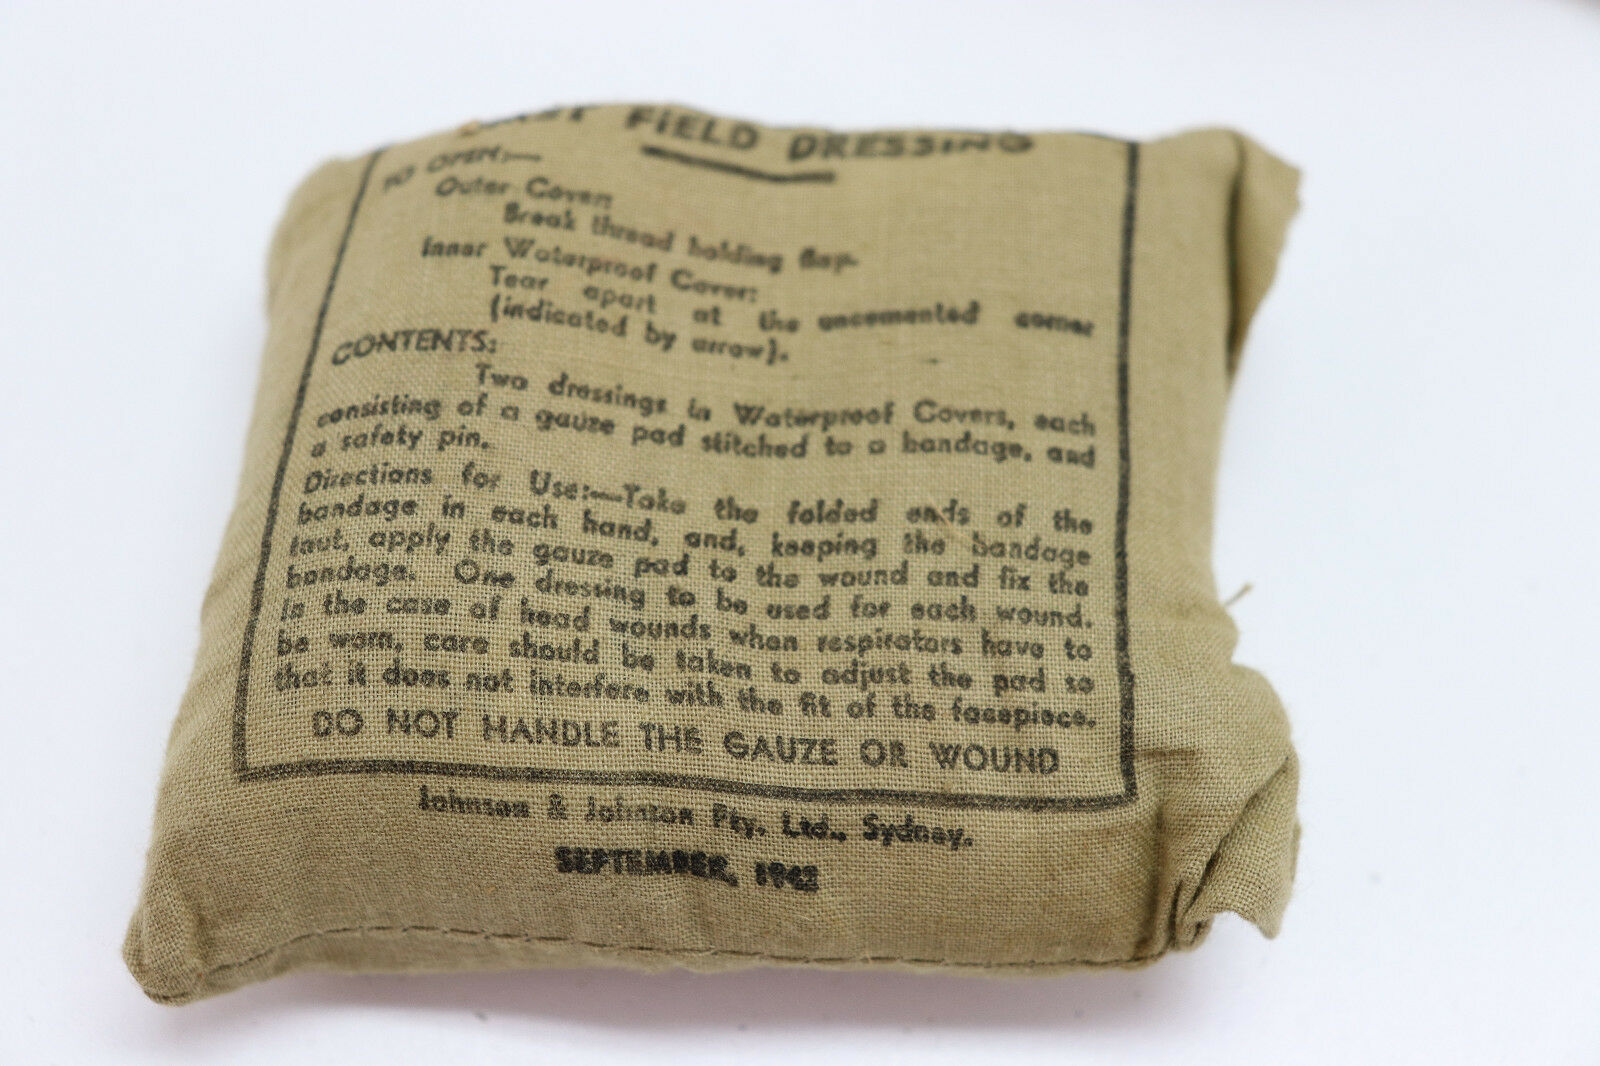 FIELD DRESSING
TO OPEN:—
Outer Cover:
Break thread holding flap.
Inner Waterproof Cover:
Tear apart at the uncemented corner
(indicated by arrow).
CONTENTS:
Two dressings in Waterproof Covers, each
consisting of a gauze pad stitched to a bandage, and
a safety pin.
Directions for Use:—Take the folded ends of the
bandage in each hand, and, keeping the bandage
taut, apply the gauze pad to the wound and fix the
bandage. One dressing to be used for each wound.
In the case of head wounds when respirators have to
be worn, care should be taken to adjust the pad so
that it does not interfere with the fit of the facepiece.
DO NOT HANDLE THE GAUZE OR WOUND
Johnson & Johnson Pty. Ltd., Sydney.
SEPTEMBER, 1942